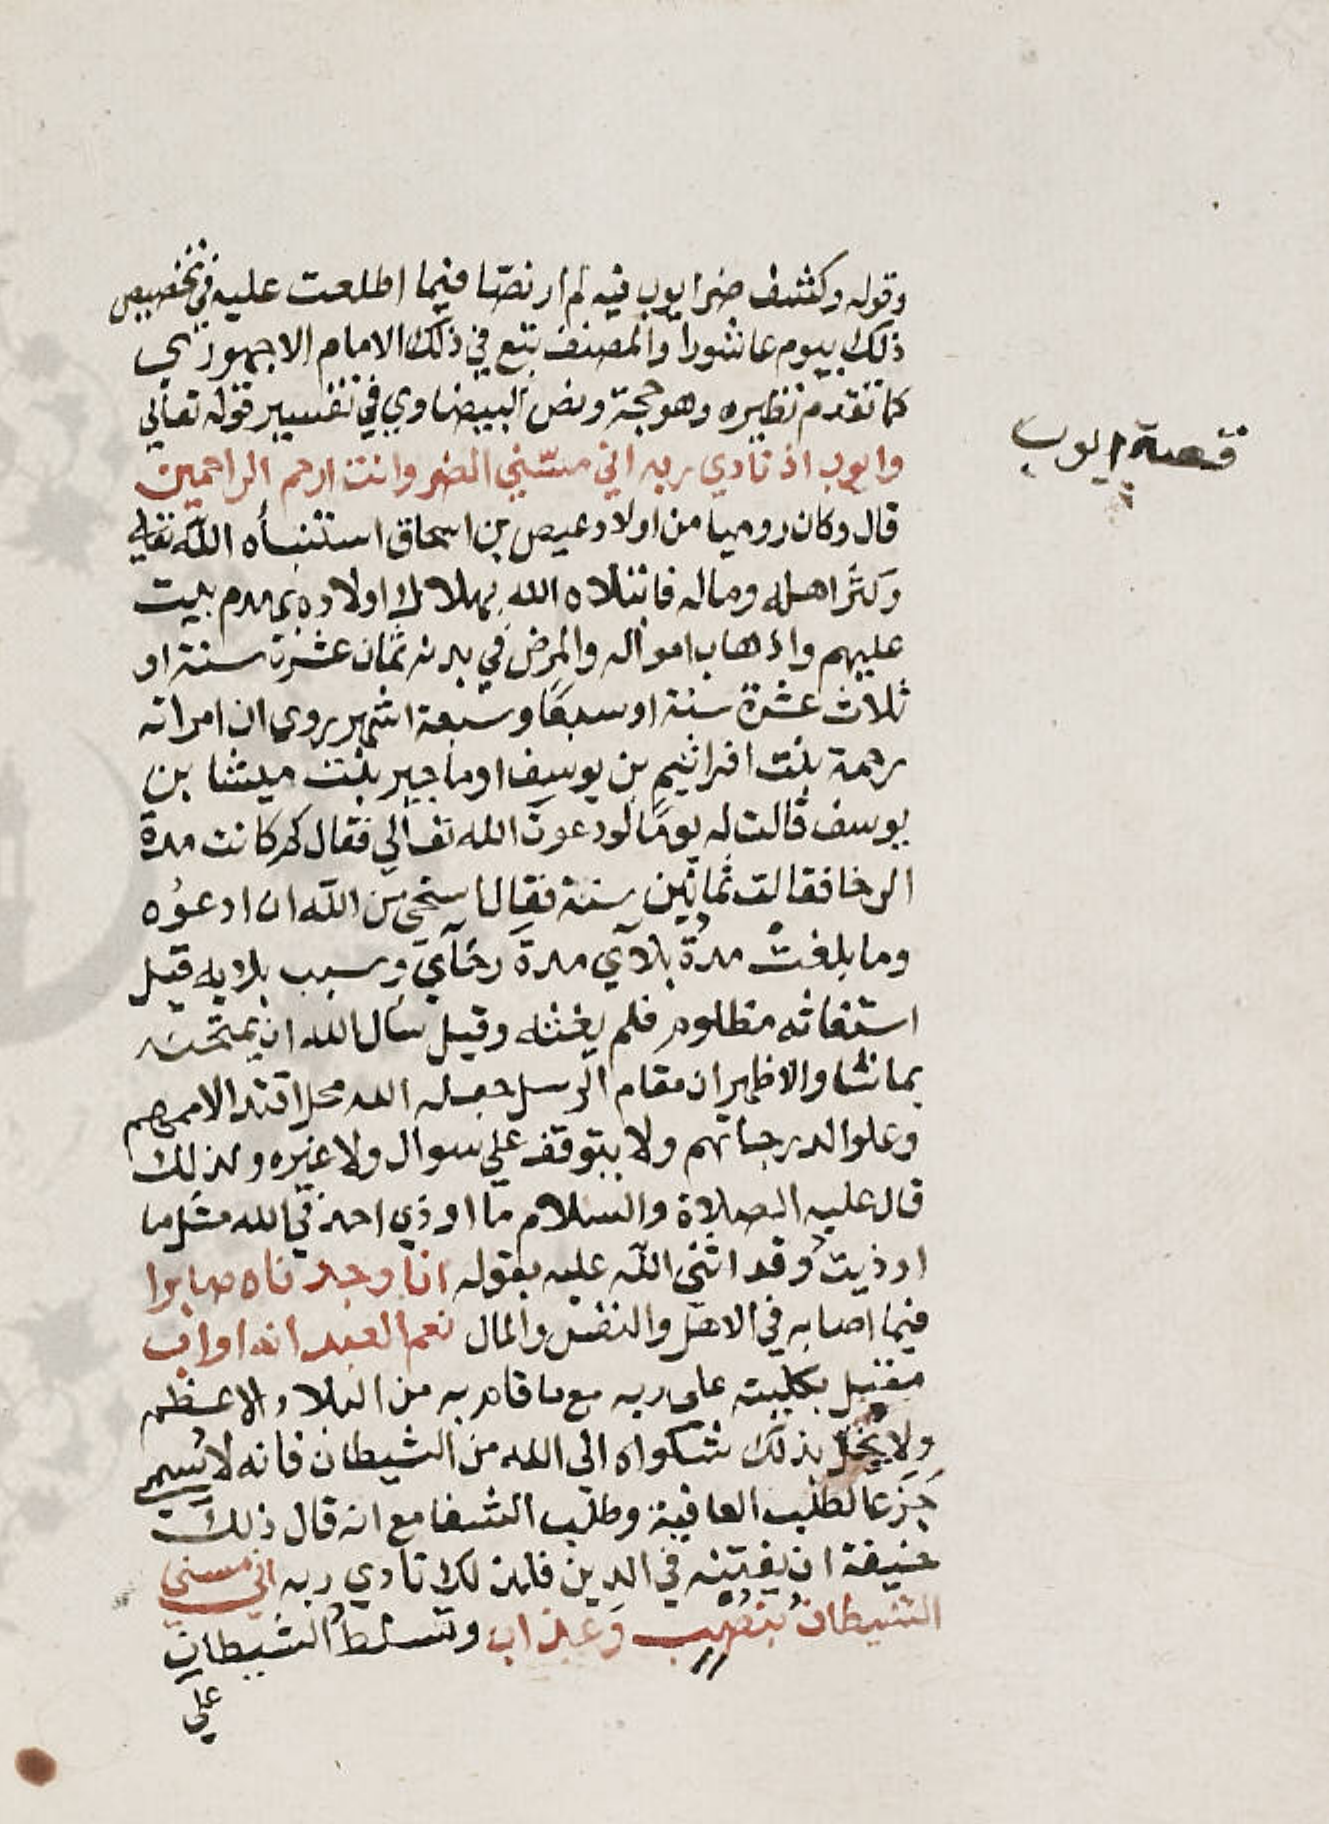 وقوله وكشف ضر ايوب فيه لم ار نصّا فيما اطلعت عليه في تخصيص
ذلك بيوم عاشورا والمصنف تبع في ذلك الامام الاجهوري
كما تقدم نظيره وهو حجة ونص البيضاوي في تفسير قوله تعالي
وايوب اذ نادي ربه اني مسّني الضر وانت ارحم الراحمين
قال وكان روميا من اولاد عيص بن اسحاق استنبأه الله تعالي
وكثّر اهله وماله فابتلاه الله بهلاك اولاده بهدم بيت
عليهم واذهاب امواله والمرض في بدنه ثمان عشرة سنة او
ثلاث عشرة سنة او سبعًا وسبعة اشهر روي ان امراته
رحمة بنت افراثيم بن يوسف او ماجير بنت ميشا بن
يوسف قالت له يومًا لو دعوت الله تعالي فقال كم كانت مدة
الرخا فقالت ثمانين سنة فقال استحي من الله ان ادعوُه
وما بلغتْ مدةُ بلآي مدةَ رخآي وسبب بلايه قيل
استغاثه مظلوم فلم يغثه وقيل سال الله ان يمتحنه
بما شا والاظهر ان مقام الرسل جعله الله محل اقتدا الامم بهم
وعلوا لدرجاتهم ولا يتوقف علي سوال ولا غيره ولذلك
قال عليه الصلاة والسلام ما اوذي احد في الله مثل ما
اوذيت وقد اثني الله عليه بقوله انا وجدناه صابرا
فيما اصابه في الاهل والنفس والمال نعم العبد انه اواب
مقبل بكليته علي ربه مع ما قام به من البلاء الاعظم
ولا يخل بذلك شكواه الي الله من الشيطان فانه لا يُسمي
جَزَعا لطلب العافية وطلب الشفا مع انه قال ذلك
خيفة ان يفتنه في الدين فلذلك نادي ربه اني مسني
الشيطان بنُصْب وعذاب وتسلط الشيطان
علي
قصة ايوب